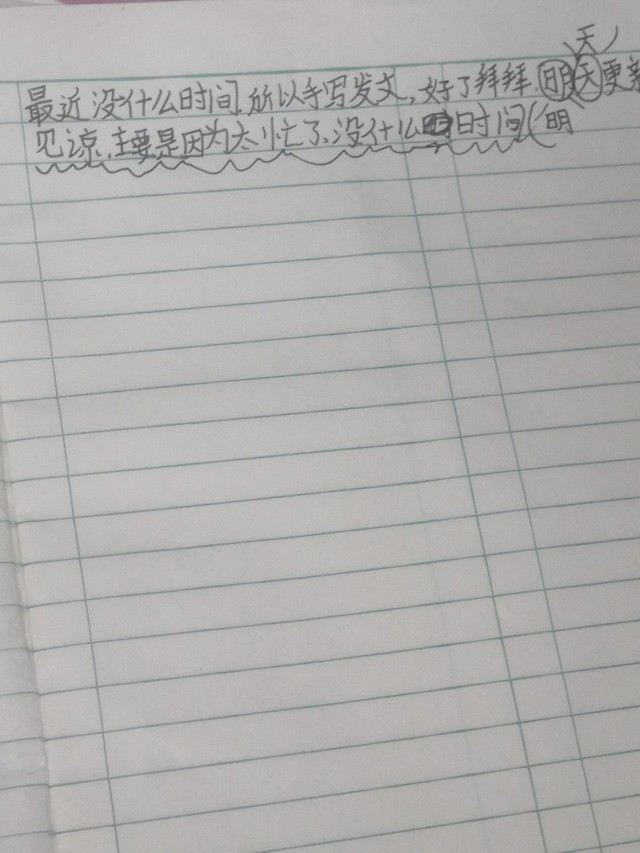 天
最近没什么时间,所以手写发文,好了拜拜,明天更新
见谅,主要是因为太忙了,没什么时间(明